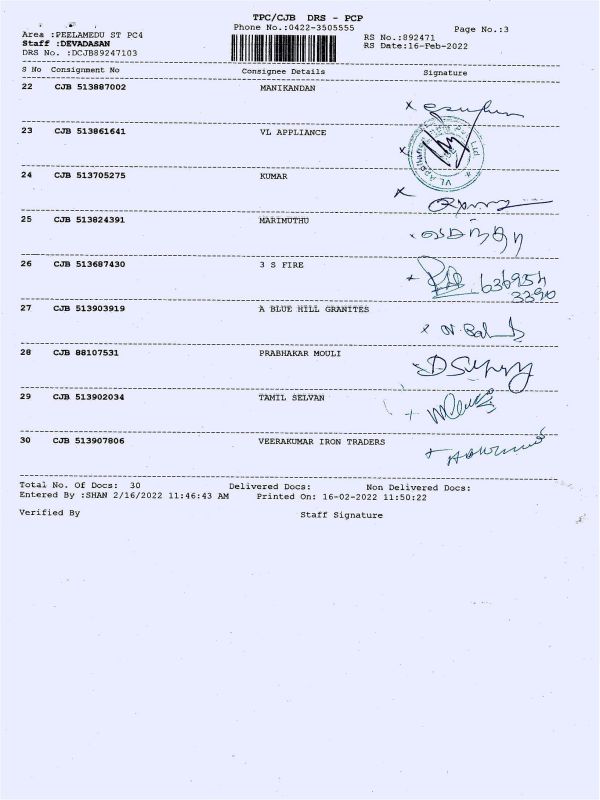 TPC/CJB DRS - PCP
Phone No.:0422-3505555
Page No.:3
Area :PEELAMEDU ST PC4
RS No.:892471
Staff :DEVADASAN
RS Date:16-Feb-2022
DRS No. :DCJB89247103
S No Consignment No Consignee Details Signature
22 CJB 513887002 MANIKANDAN
23 CJB 513861641 VL APPLIANCE
24 CJB 513705275 KUMAR
25 CJB 513824391 MARIMUTHU
26 CJB 513687430 3 S FIRE
636954
3390
27 CJB 513903919 A BLUE HILL GRANITES
28 CJB 88107531 PRABHAKAR MOULI
29 CJB 513902034 TAMIL SELVAN
30 CJB 513907806 VEERAKUMAR IRON TRADERS
Total No. Of Docs: 30 Delivered Docs: Non Delivered Docs:
Entered By :SHAN 2/16/2022 11:46:43 AM Printed On: 16-02-2022 11:50:22
Verified By Staff Signature